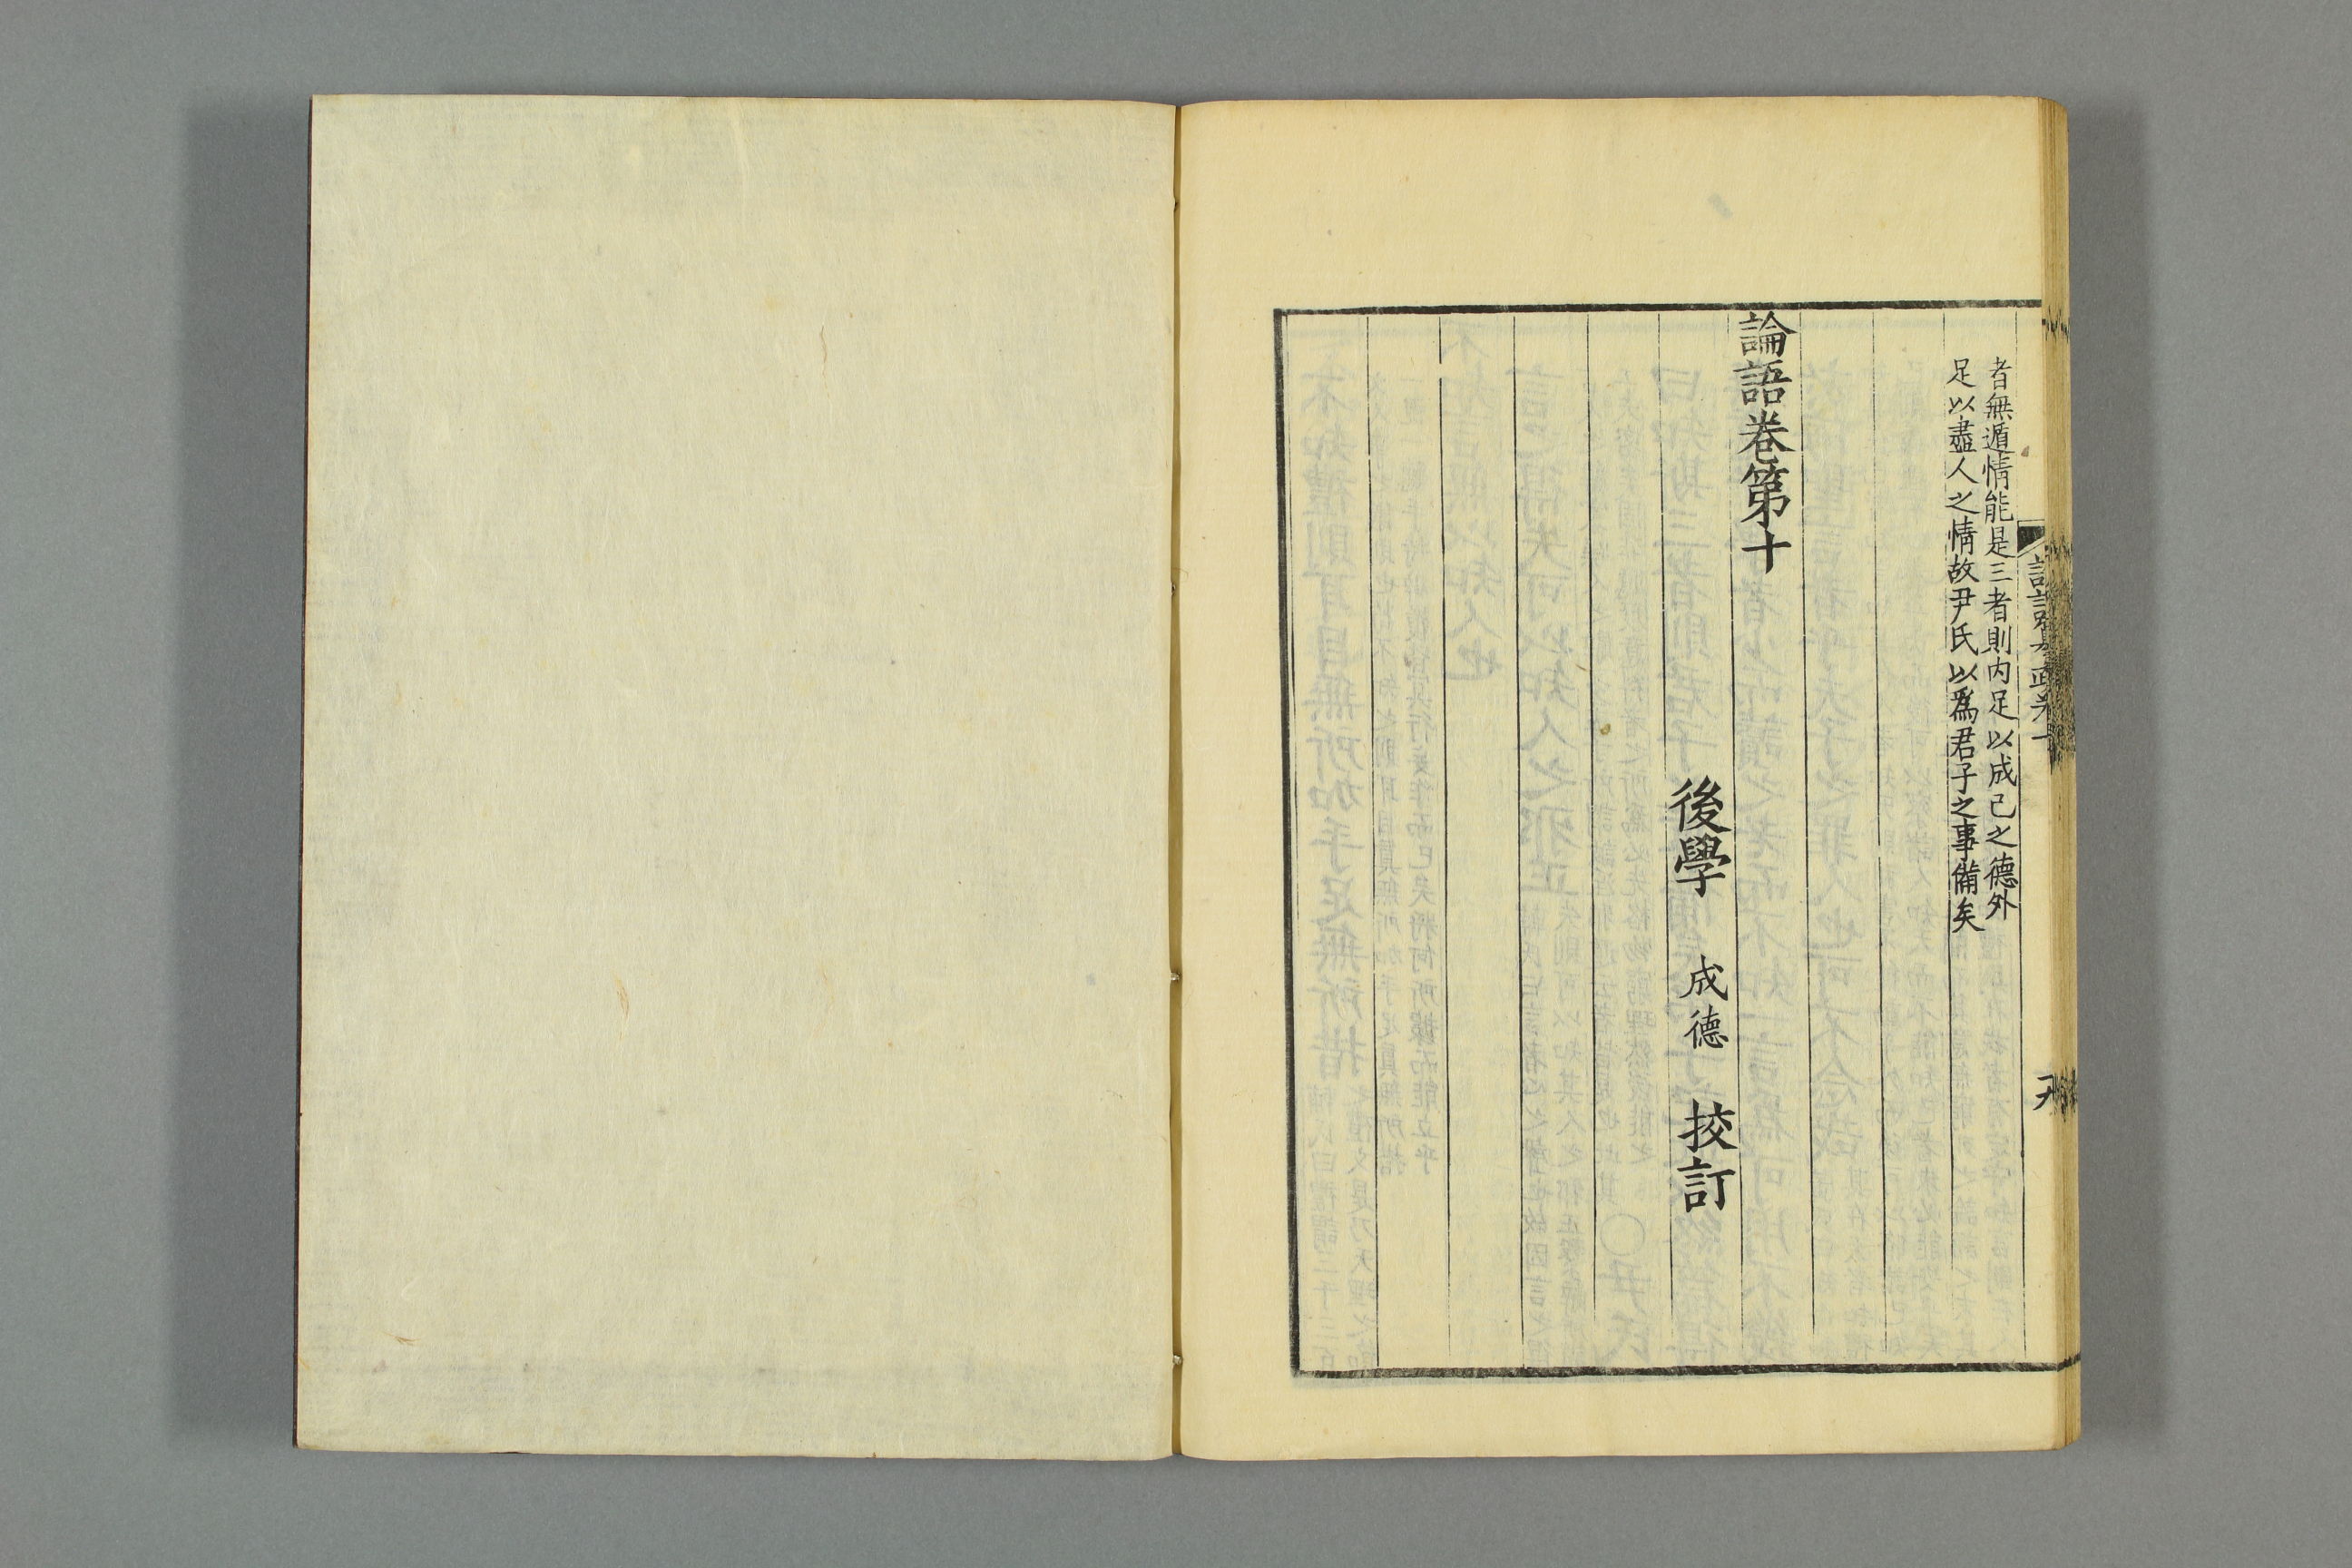 者無遁情能是三者則内足以成己之德外
足以盡人之情故尹氏以爲君子之事備矣
論語卷第十
後學 成德 挍訂